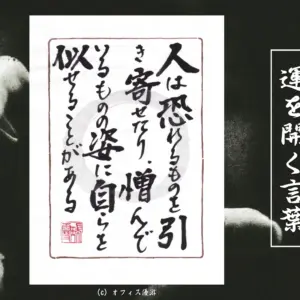 人は恐れるものを引
き寄せたり、憎んで
いるものの姿に自らを
似せることがある
運を開く言葉
(c) オフィス漫浴